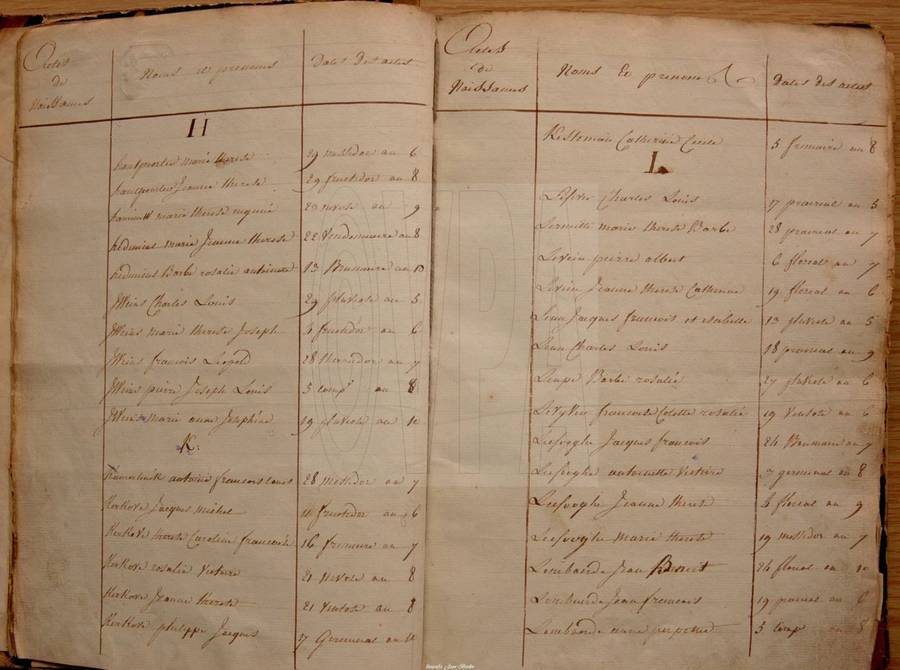 Actes
de
Naissances
Noms et prenoms
Dates des actes
H
hautporter marie therese 29 messidor an 6
Jeanne therese 29 fructidor an 8
marie therese eugenie nivose an 9
hedmius marie Jeanne therese 22 Vendemiaire an 8
hedmius Barbe rosalie antoinette 13 Brumaire an 10
Charles Louis 29 pluviose an 5
marie therese Joseph 4 fructidor an 6
francois Leopold 28 thermidor an 7
pierre Joseph Louis 5 comp.r an 8
marie anne Josephine 19 pluviose an 10
K.
antoine francois Louis 28 messidor an 7
Kerkove Jacques michel 11 fructidor an 6
Kerkove therese Caroline francoise 16 frimaire an 7
Kerkove rosalie Victoire 21 nivose an 8
Kerkove Jeanne therese 21 Ventose an 8
Kerkove philippe Jacques 7 Germinal an
Actes
de
Naissances
Noms et prenoms
Dates des actes
Kesteman Catherine Cecile 5 frimaire an 8
L
Lefevre Charles Louis 17 prairial an 5
Lermitte marie therese Barbe 28 prairial an 7
Levein pierre albert 6 floreal an 7
Levein Jeanne therese Catherine 19 floreal an 6
Leun Jacques francois et isabelle 13 pluviose an 5
Leun Charles Louis 18 prairial an 9
Leupe Barbe rosalie 27 pluviose an 6
francoise Colette rosalie 19 Ventose an 6
Liefooghe Jacques francois 24 Brumaire an 7
Liefooghe antoinette Victoire 7 germinal an 8
Liefooghe Jeanne therese 4 floreal an 9
Liefooghe marie therese 19 messidor an 7
Lombaerde Jean Benoit 24 floreal an 10
Lombaerde Jean francois 19 prairial an 6
Lombaerde anne perpetue 5 comp an 8